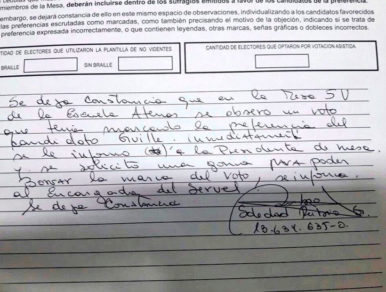 miembros de la Mesa, deberán incluirse dentro de los sufragios emitidos a favor de los candidatos de la preferencia.
embargo, se dejará constancia de ello en este mismo espacio de observaciones, individualizando a los candidatos favorecidos
las preferencias escrutadas como marcadas, como también precisando el motivo de la objeción, indicando si se trata de
preferencia expresada incorrectamente, o que contienen leyendas, otras marcas, señas gráficas o dobleces incorrectos.
TIDAD DE ELECTORES QUE UTILIZARON LA PLANTILLA DE NO VIDENTES
CANTIDAD DE ELECTORES QUE OPTARON POR VOTACIÓN ASISTIDA
BRAILLE
SIN BRAILLE
Se deja constancia que en la Mesa 5V
de la Escuela Atenas se observo un voto
que tenia marcado la preferencia del
candidato Guille, inmediatamente
se le informo a la Presidenta de mesa.
y se solicito una goma para poder
Borrar la marca del voto, se informa
al Encargada del Servel
Se deja Constancia
Soledad